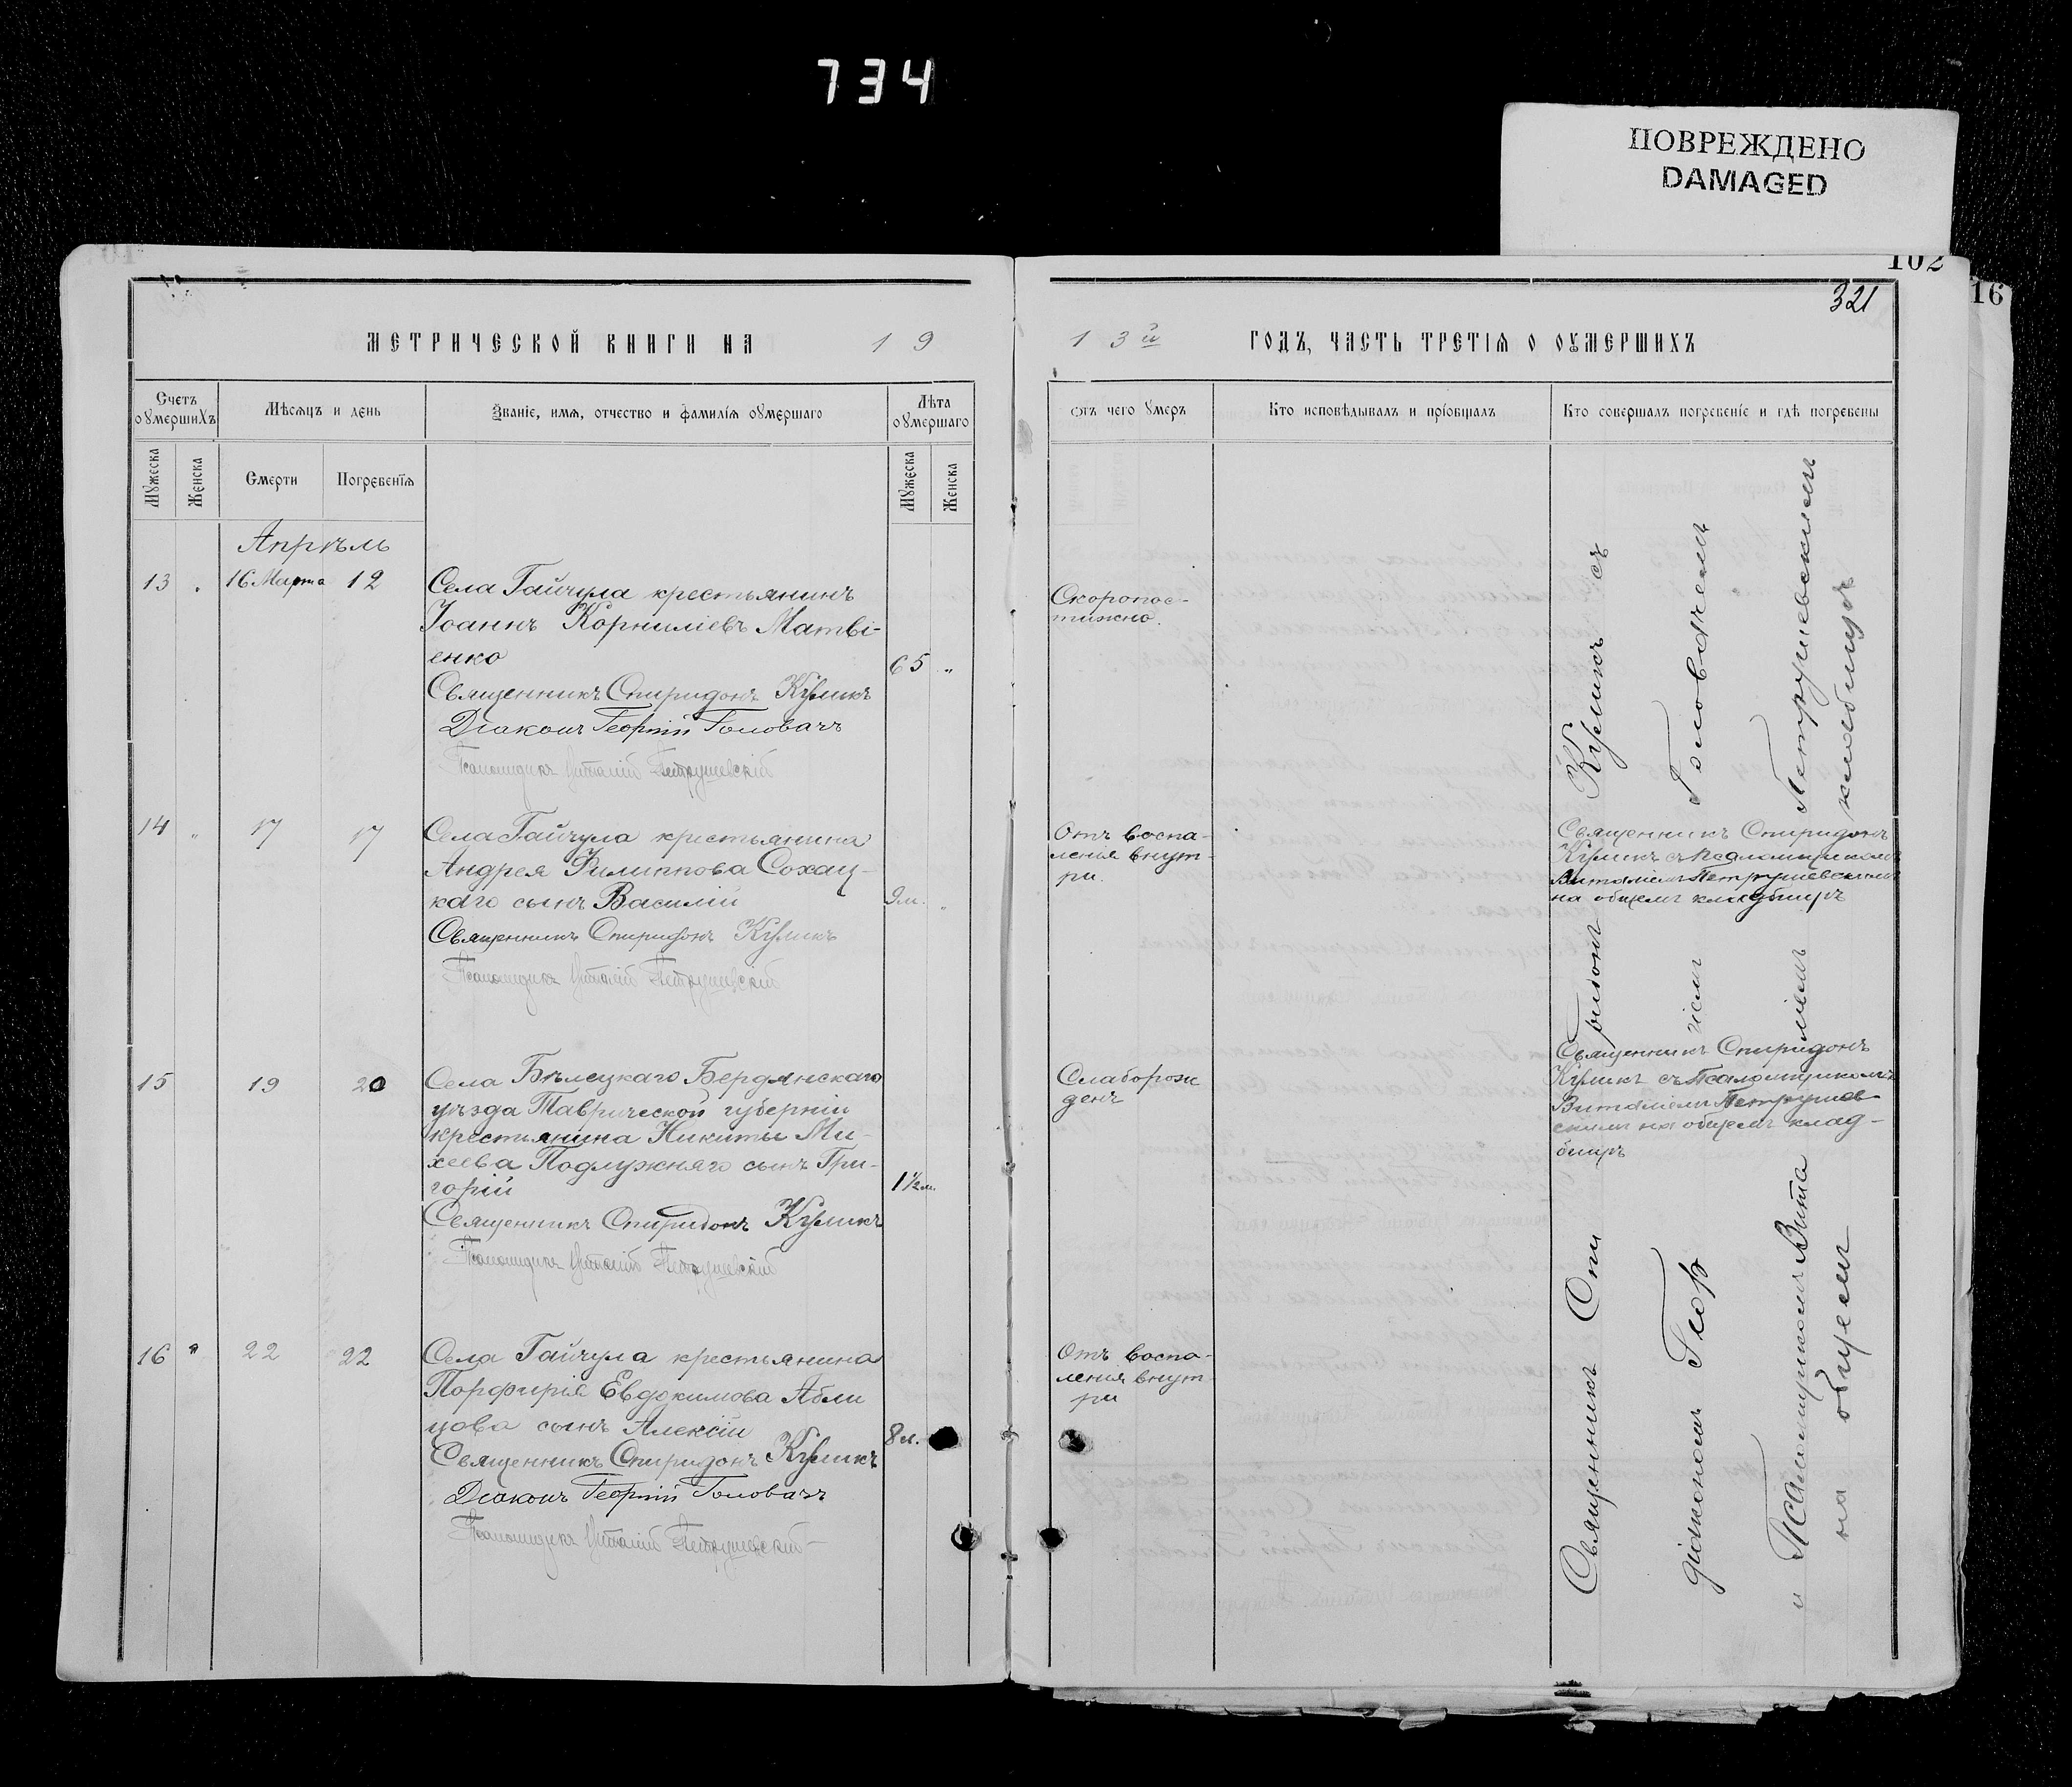 734
ПОВРЕЖДЕНО
DAMAGED
102
16
321
МЕТРИЧЕСКОЙ КНИГИ НА 19
13й ГОДЪ, ЧАСТЬ ТРЕТІЯ О ОУМЕРШИХЪ
Счетъ оумершихъ
Мѣсяцъ и день
Званіе, имя, отчество и фамилія оумершаго
Лѣта оумершаго
Отъ чего умеръ
Кто исповѣдывалъ и пріобщалъ
Кто совершалъ погребеніе и гдѣ погребены
Мужеска
Женска
Смерти
Погребенія
Мужеска
Женска
Апрѣль
13 " 16 Марта 12
Села Гайчула крестьянинъ
Іоаннъ Корниліевъ Матві-
енко
65 "
Священникъ Спиридонъ Куликъ
Діаконъ Георгій Головачъ
Псаломщикъ Виталій Петрушевскій
Скоропос-
тижно.
14 " 17 17
Села Гайчула крестьянина
Андрея Филиппова Сохац-
каго сынъ Василій
9м. "
Священникъ Спиридонъ Куликъ
Псаломщикъ Виталій Петрушевскій
Отъ воспа-
ленія внут-
ри.
Священникъ Спиридонъ
Куликъ съ Псаломщикомъ
Виталіемъ Петрушевскимъ
на общемъ кладбищѣ
15 19 20
Села Бѣлецкаго Бердянскаго
уѣзда Таврической губерніи
крестьянина Никиты Ми-
хеева Подлужняго сынъ Гри-
горій
1½м.
Священникъ Спиридонъ Куликъ
Псаломщикъ Виталій Петрушевскій
Слаборож
денъ
Священникъ Спиридонъ
Куликъ съ Псаломщикомъ
Виталіемъ Петрушев-
скимъ на общемъ клад-
бищѣ
16 " 22 22
Села Гайчула крестьянина
Порфирія Евдокимова Абли
цова сынъ Алексій
8м.
Священникъ Спиридонъ Куликъ
Діаконъ Георгій Головачъ
Псаломщикъ Виталій Петрушевскій
Отъ воспа-
ленія внут
ри
Священникъ Спиридонъ Куликъ съ
діакономъ Георгіемъ Головачемъ
и Псаломщикомъ Виталіемъ Петрушевскимъ
на общемъ кладбищѣ